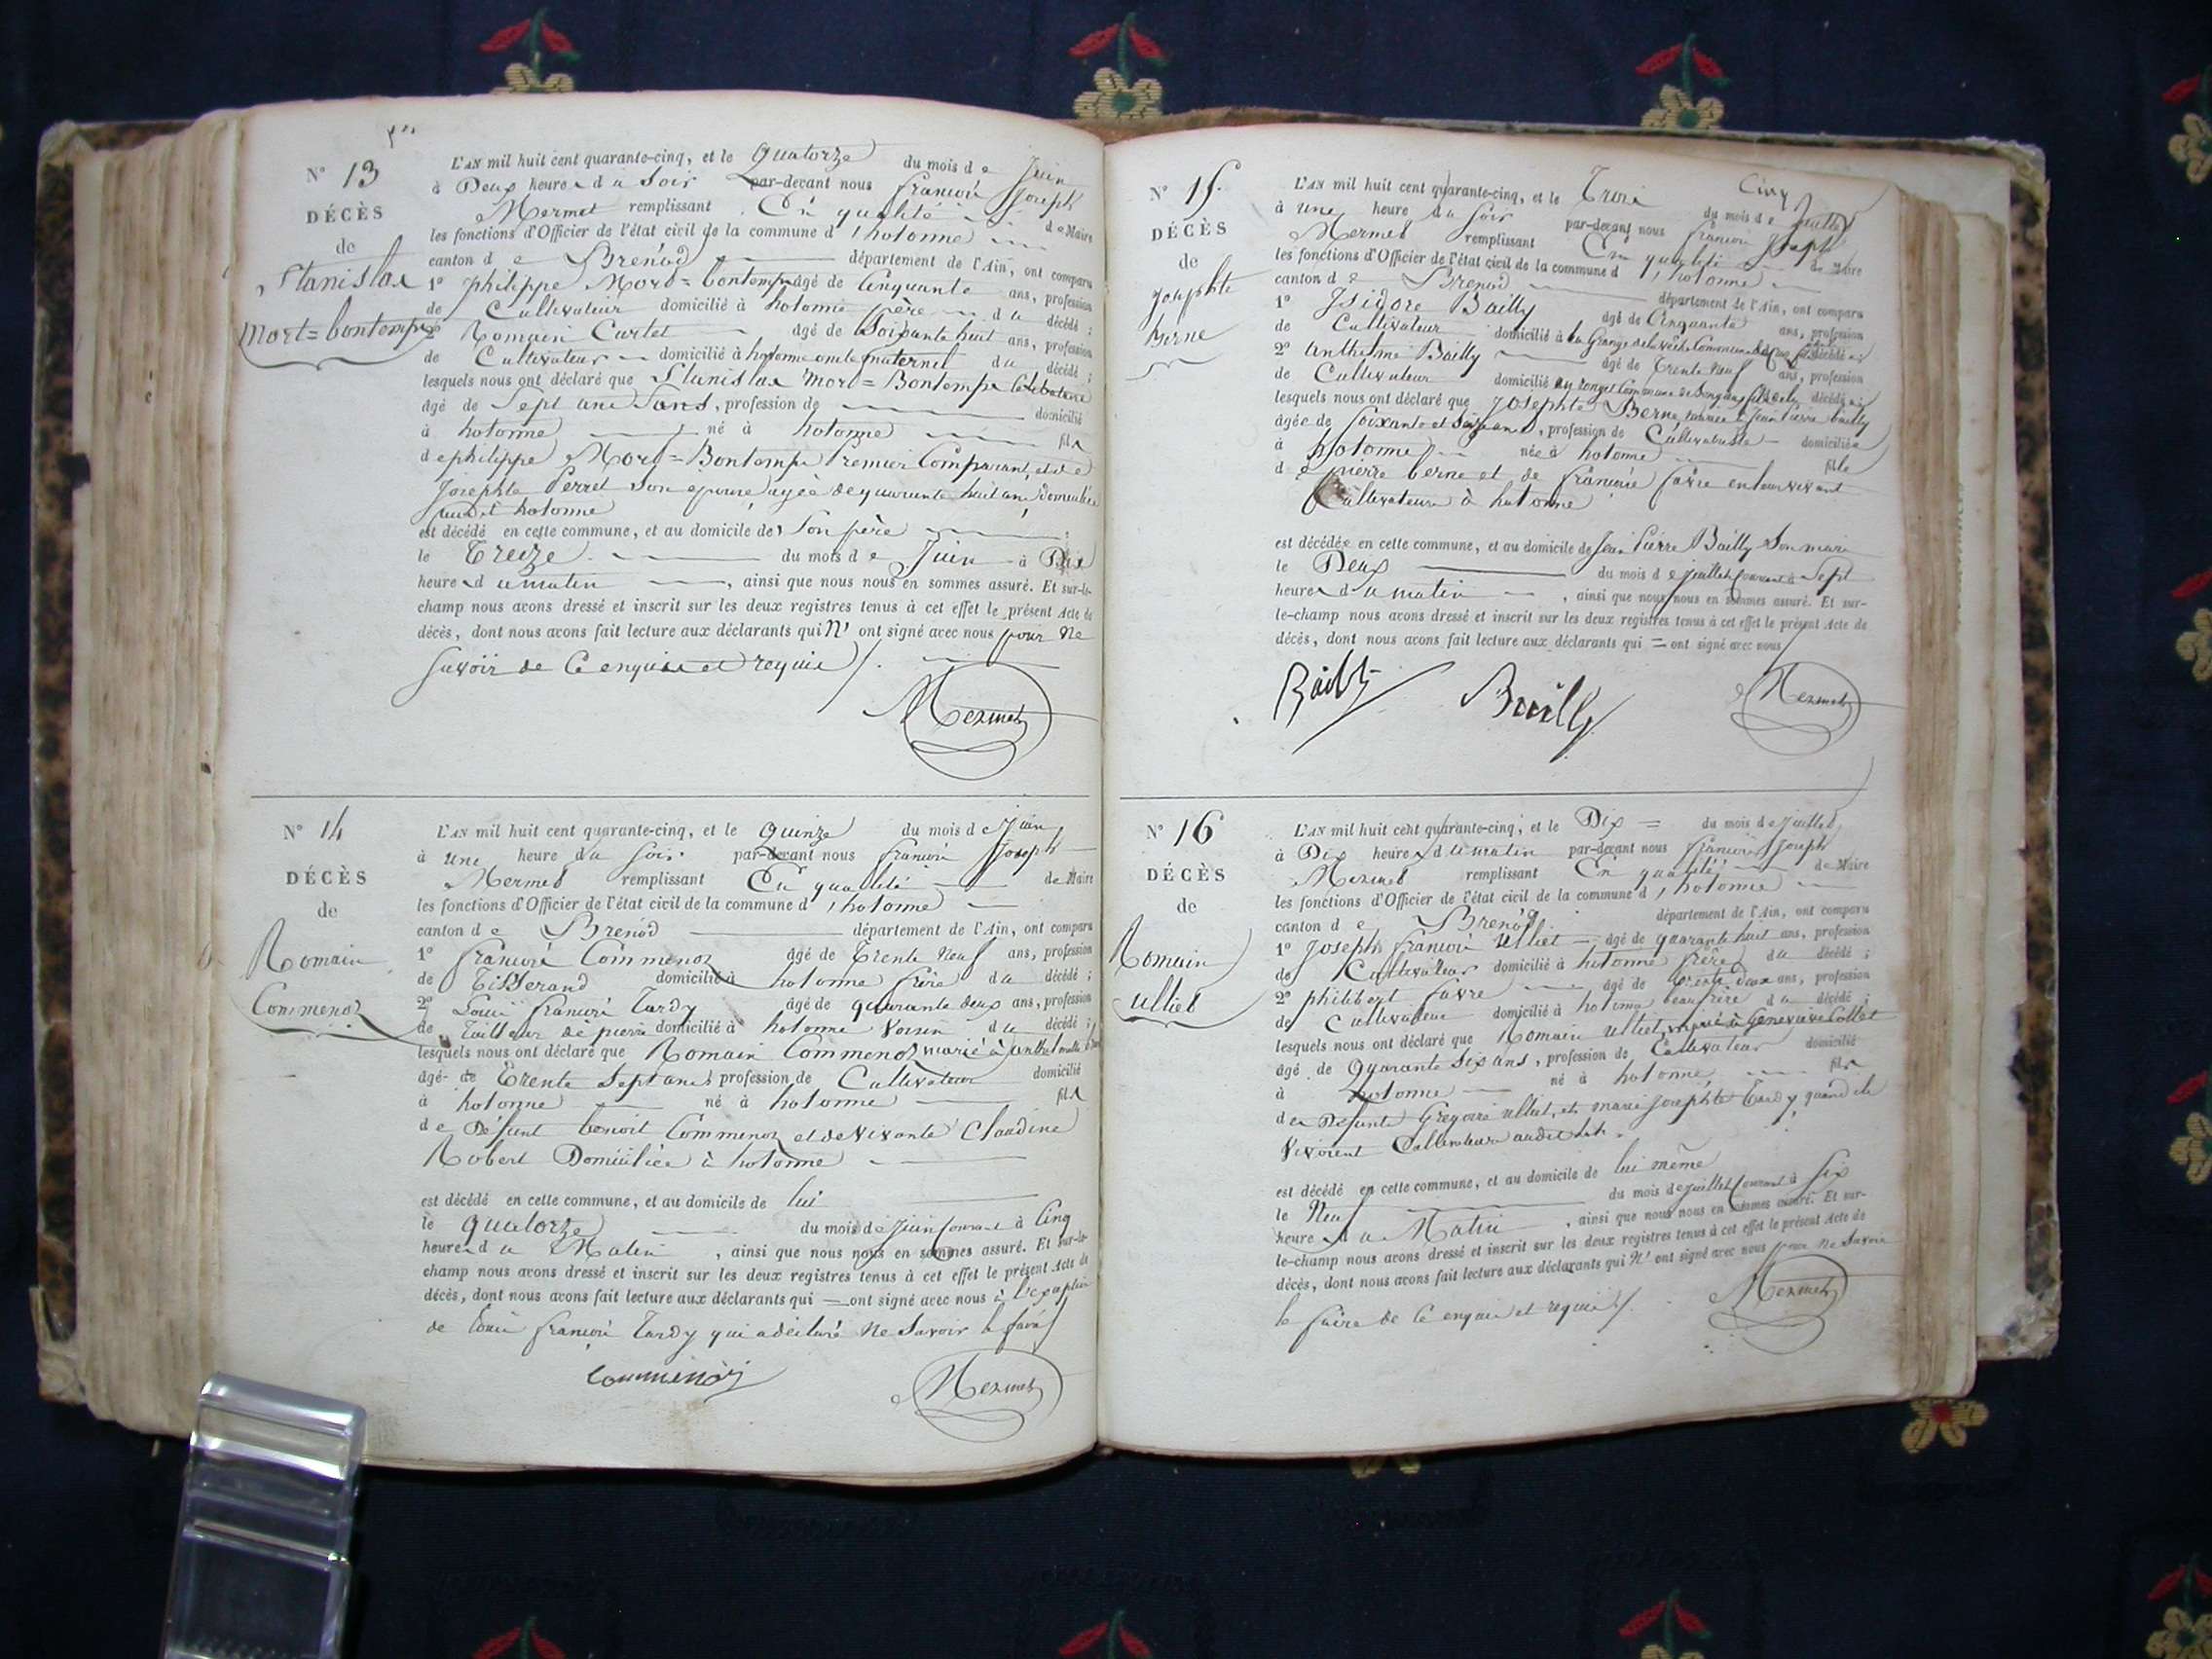 N° 13
DÉCÈS
de
Stanislas
Mort=bontemps
L'AN mil huit cent quarante-cinq, et le Quatorze du mois de Juin
à Deux heures du Soir par-devant nous françois Joseph
Mermet remplissant En qualité de Maire
les fonctions d'Officier de l'état civil de la commune d'hotonne
canton de Brenod département de l'Ain, ont comparu
1° philippe Mort=bontemps âgé de Cinquante ans, profession
de Cultivateur domicilié à hotonne père du décédé ;
2° Romain Curtet âgé de Soixante huit ans, profession
de Cultivateur domicilié à hotonne oncle maternel du décédé ;
lesquels nous ont déclaré que Stanislas Mort=Bontemps Célibataire
âgé de Sept ans, profession de domicilié
à hotonne né à hotonne fils
de philippe Mort=Bontemps Premier Comparant, et de
Josephte Perret Son epouse agée de quarante huit ans Domiciliée
audit hotonne
est décédé en cette commune, et au domicile de Son père
le Treize du mois de Juin à Dix
heures du matin, ainsi que nous nous en sommes assuré. Et sur-le-
champ nous avons dressé et inscrit sur les deux registres tenus à cet effet le présent Acte de
décès, dont nous avons fait lecture aux déclarants qui N'ont signé avec nous pour Ne
Savoir de Ce enquis et requis
Mermet
N° 14
DÉCÈS
de
Romain
Commenoz
L'AN mil huit cent quarante-cinq, et le Quinze du mois de Juin
à une heure du Soir par-devant nous françois Joseph
Mermet remplissant En qualité de Maire
les fonctions d'Officier de l'état civil de la commune d'hotonne
canton de Brenod département de l'Ain, ont comparu
1° françois Commenoz âgé de Trente Neuf ans, profession
de Tisserand domicilié à hotonne frère du décédé ;
2° Louis françois Tardy âgé de quarante deux ans, profession
de Tailleur de pierre domicilié à hotonne Voisin du décédé ;
lesquels nous ont déclaré que Romain Commenoz marié à
âgé de Trente Sept ans profession de Cultivateur domicilié
à hotonne né à hotonne fils
de Défunt benoit Commenoz et de Vivante Claudine
Robert Domiciliée à hotonne
est décédé en cette commune, et au domicile de lui
le quatorze du mois de Juin Courant à Cinq
heures du Matin, ainsi que nous nous en sommes assuré. Et sur-le-
champ nous avons dressé et inscrit sur les deux registres tenus à cet effet le présent Acte de
décès, dont nous avons fait lecture aux déclarants qui = ont signé avec nous à l'exception
de Louis françois Tardy qui a déclaré Ne Savoir le faire
Commenoz
Mermet
N° 15
DÉCÈS
de
Josephte
Berne
L'AN mil huit cent quarante-cinq, et le Trois du mois de Juillet
Cinq
à une heure du Soir par-devant nous françois Joseph
Mermet remplissant En qualité de Maire
les fonctions d'Officier de l'état civil de la commune d'hotonne
canton de Brenod département de l'Ain, ont comparu
1° Isidore Bailly âgé de Cinquante ans, profession
de Cultivateur domicilié à la Grange
2° anthelme Bailly âgé de Trente Neuf ans, profession
de Cultivateur domicilié Commune de Songieu décédée
lesquels nous ont déclaré que Josephte Berne, mariée à Jean Pierre Bailly
âgée de Soixante et Seize ans, profession de Cultivatrice domiciliée
à hotonne née à hotonne fille
de pierre berne et de françoise favre en leur vivant
Cultivateurs à hotonne
est décédée en cette commune, et au domicile de Jean Pierre Bailly Son mari
le Deux du mois de juillet Courant à Sept
heures du matin, ainsi que nous nous en sommes assuré. Et sur-
le-champ nous avons dressé et inscrit sur les deux registres tenus à cet effet le présent Acte de
décès, dont nous avons fait lecture aux déclarants qui = ont signé avec nous
Bailly Bailly Mermet
N° 16
DÉCÈS
de
Romain
Ulliet
L'AN mil huit cent quarante-cinq, et le Dix = du mois de Juillet
à Dix heures du matin par-devant nous françois Joseph
Mermet remplissant En qualité de Maire
les fonctions d'Officier de l'état civil de la commune d'hotonne
canton de Brenod département de l'Ain, ont comparu
1° Joseph françois Ulliet âgé de quarante huit ans, profession
de Cultivateur domicilié à hotonne frère du décédé ;
2° philibert favre âgé de trente deux ans, profession
de Cultivateur domicilié à hotonne beau frère du décédé ;
lesquels nous ont déclaré que Romain Ulliet, marié à Genevieve Collet
âgé de Quarante Six ans, profession de Cultivateur domicilié
à hotonne né à hotonne fils
des Défunts Gregoire Ulliet, et marie Josephte Tardy quand ils
Vivoient Cultivateurs audit lieu
est décédé en cette commune, et au domicile de lui même
le Neuf du mois de juillet Courant à Six
heures du Matin, ainsi que nous nous en sommes assuré. Et sur-
le-champ nous avons dressé et inscrit sur les deux registres tenus à cet effet le présent Acte de
décès, dont nous avons fait lecture aux déclarants qui N'ont signé avec nous pour ne Savoir
le faire de Ce enquis et requis
Mermet